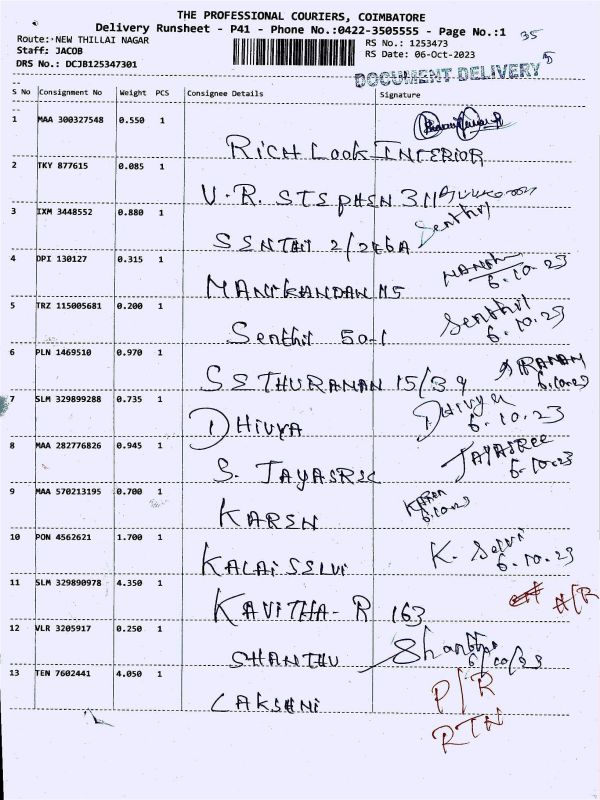 THE PROFESSIONAL COURIERS, COIMBATORE
Delivery Runsheet - P41 - Phone No.:0422-3505555 - Page No.:1 35
Route: NEW THILLAI NAGAR RS No.: 1253473
Staff: JACOB RS Date: 06-Oct-2023
DRS No.: DCJB125347301 DOCUMENT DELIVERY
S No Consignment No Weight PCS Consignee Details Signature
1 MAA 300327548 0.550 1
RICH LOOK INTERIOR
2 TKY 877615 0.085 1
V.R. STEPHEN 311
3 IXM 3448552 0.880 1 Senthil
SENTHI 2/246A
4 DPI 130127 0.315 1
6.10.23
MANIKANDAN 115
5 TRZ 115005681 0.200 1 Senthil
6.10.23
Senthil 50-1
6 PLN 1469510 0.970 1
6.10.23
SETHURAMAN 15/39
7 SLM 329899288 0.735 1 Dhivya
6.10.23
DHIVYA
8 MAA 282776826 0.945 1 JAYASREE
6.10.23
S. JAYASREE
9 MAA 570213195 0.700 1 KAREN
6.10.23
KAREN
10 PON 4562621 1.700 1 K. Selvi
6.10.23
KALAISELVI
11 SLM 329890978 4.350 1 A/R
KAVITHA-R 163
12 VLR 3205917 0.250 1 Shanthu
6/10/23
SHANTHU
13 TEN 7602441 4.050 1 P/R
LAKSHMI
RTN